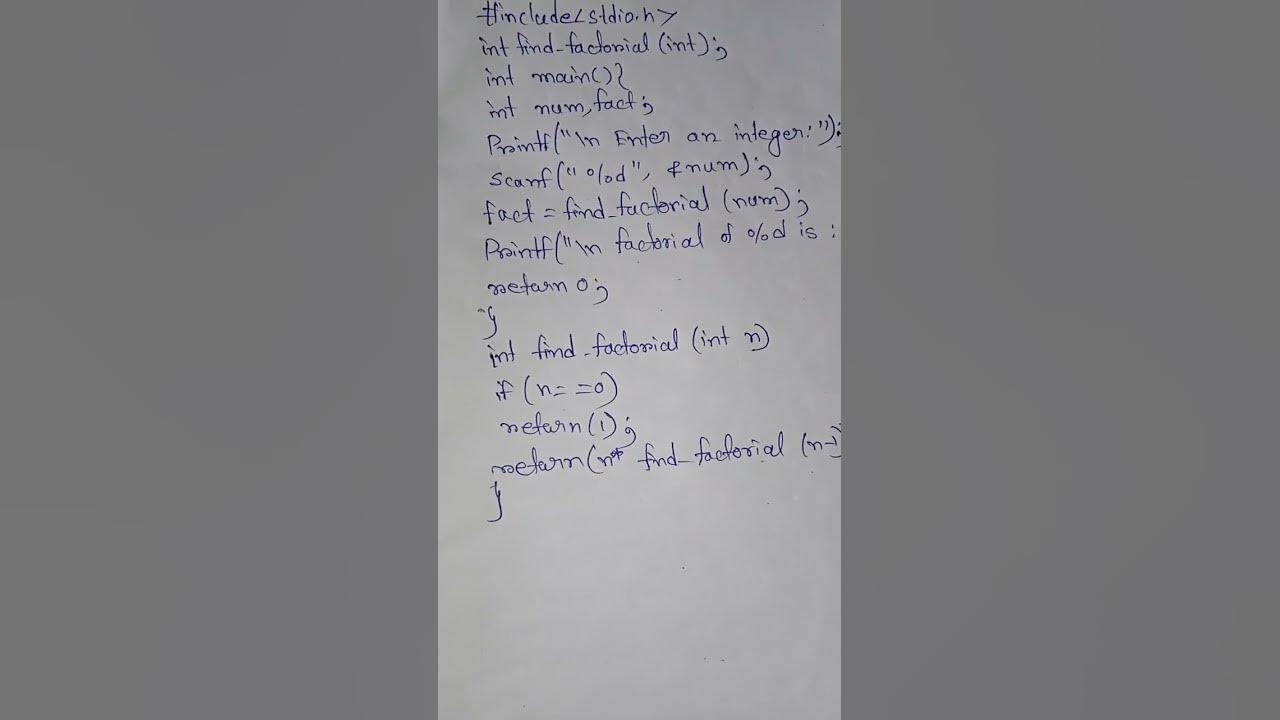 #include<stdio.h>
int find_factorial (int);
int main(){
int num, fact;
Printf("\n Enter an integer:");
scanf("%d", &num);
fact = find_factorial (num);
Printf("\n factorial of %d is :
return 0;
}
int find_factorial (int n)
if (n= =0)
return(1);
return(n* find_factorial (n-1)
}